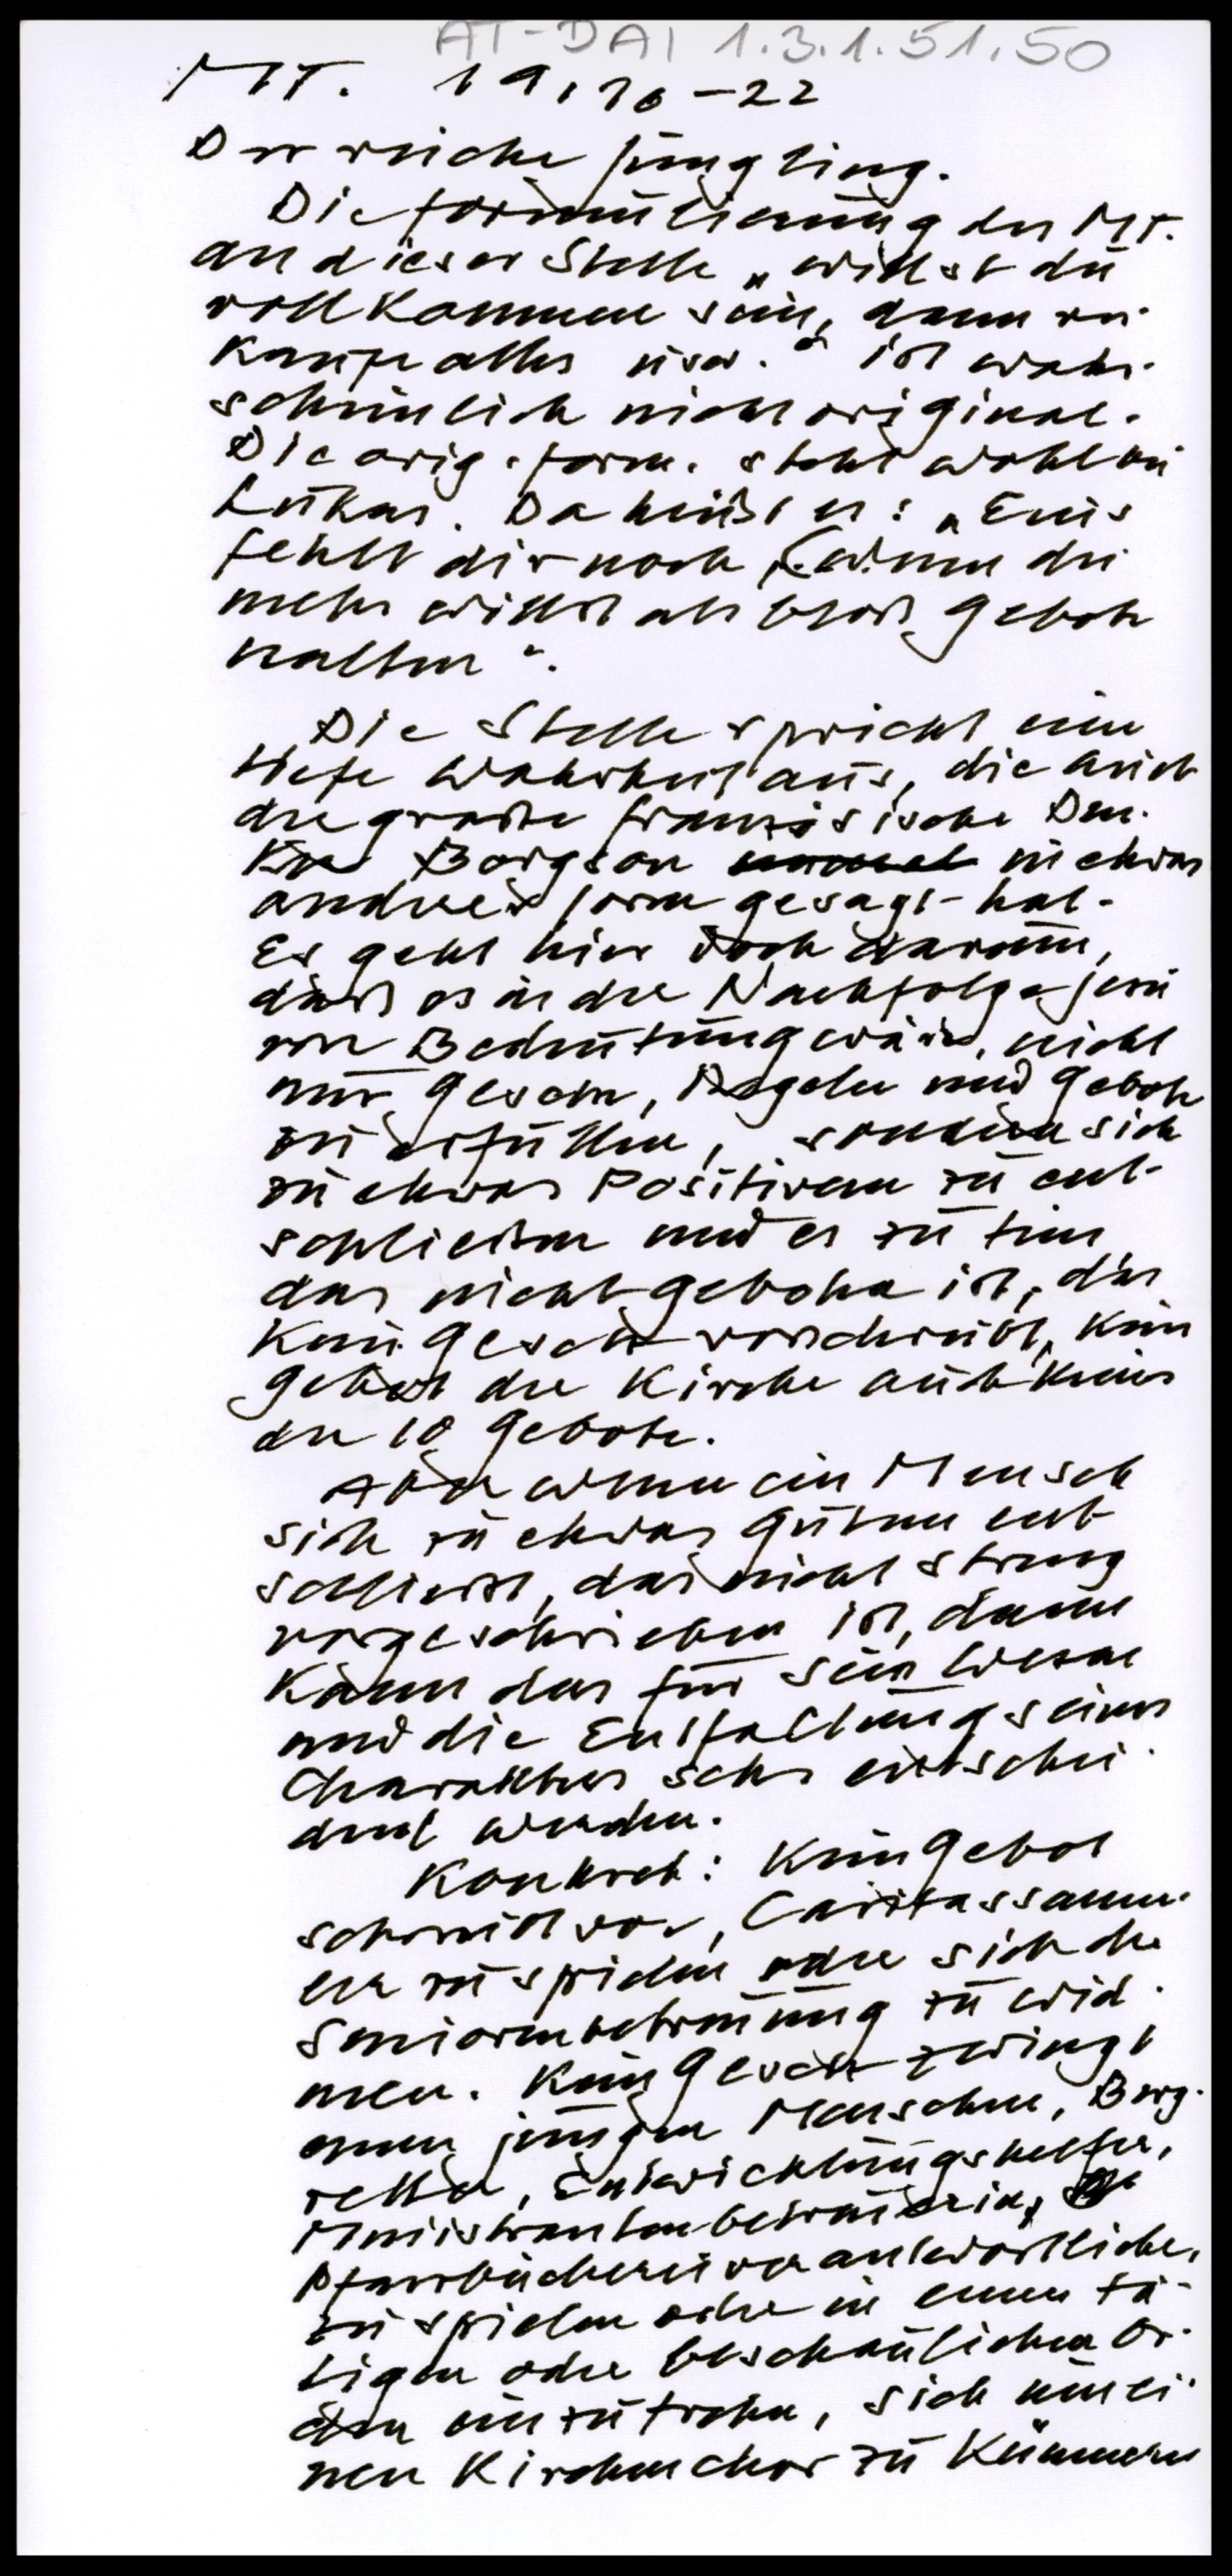 AT-DAI 1.3.1.51.50
MT. 19,16-22
Der reiche Jüngling.
Die Formulierung des Mt.
an dieser Stelle „willst du
vollkommen sein, dann ver-
kaufe alles usw.“ ist wahr-
scheinlich nicht original.
Die orig. Form. steht wohl bei
Lukas. Da heißt es: „Eins
fehlt dir noch, (wenn du
mehr willst als bloß Gebote
halten“.
Die Stelle spricht eine
tiefe Wahrheit aus, die auch
der große französische Den-
ker Bergson in etwas
anderer Form gesagt hat.
Es geht hier doch darum,
daß es in der Nachfolge Jesu
von Bedeutung wäre, nicht
nur Gesetze, Regeln und Gebote
zu erfüllen, sondern sich
zu etwas Positivem zu ent-
schließen und es zu tun
das nicht geboten ist, das
kein Gesetz vorschreibt, kein
Gebot der Kirche auch keines
der 10 Gebote.
Aber wenn ein Mensch
sich zu etwas Gutem ent-
schließt, das nicht streng
vorgeschrieben ist, dann
kann das für sein Wesen
und die Entfaltung seines
Charakters sehr entschei-
dend werden.
Konkret: Kein Gebot
schreibt vor, Caritassamm-
ler zu spielen oder sich der
Seniorenbetreuung zu wid-
men. Kein Gesetz zwingt
einen jungen Menschen, Berg-
retter, Entwicklungshelfer,
Ministrantenbetreuerin,
Pfarrbüchereiverantwortliche,
zu spielen oder in einen tä-
tigen oder beschaulichen Or-
den einzutreten, sich um ei-
nen Kirchenchor zu kümmern